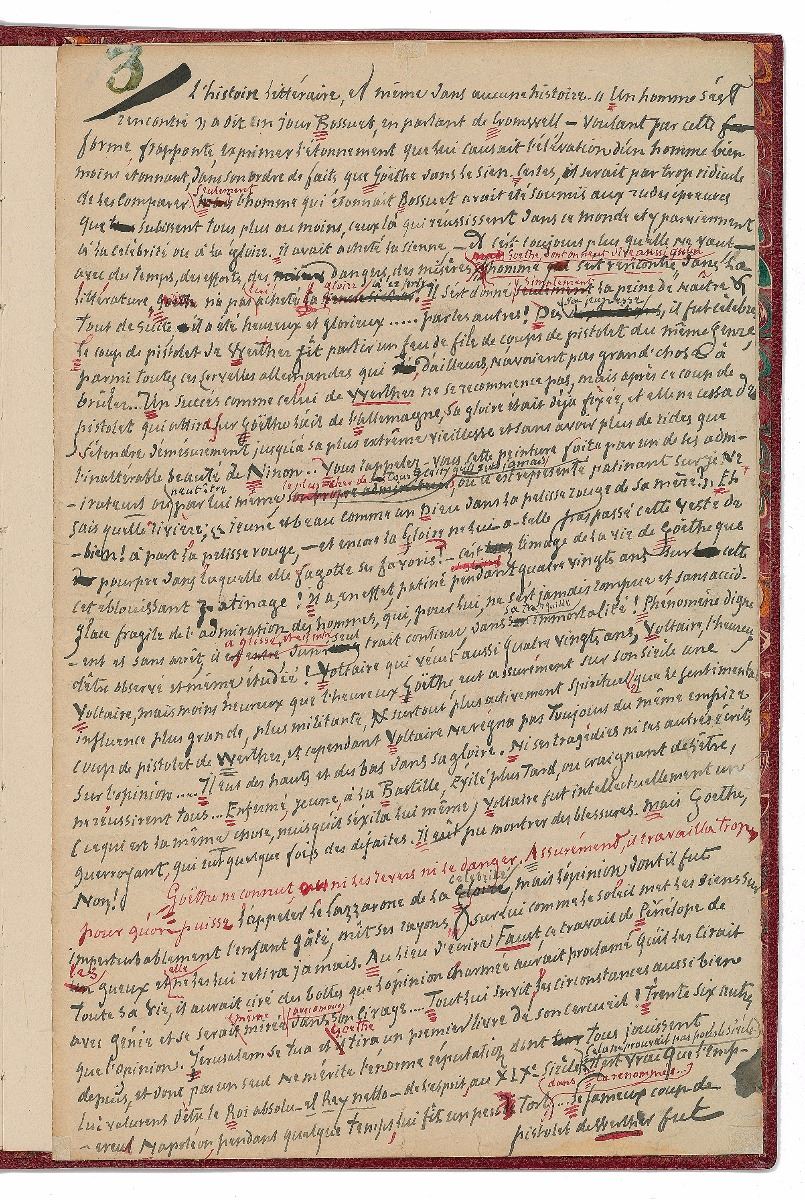 3
l'histoire littéraire, et même dans aucune histoire. « Un homme s'est
rencontré » a dit un jour Bossuet, en parlant de Cromwell – voulant par cette
forme frappante exprimer l'étonnement que lui causait l'élévation d'un homme bien
moins étonnant, dans son ordre de faits que Goëthe dans le sien. Certes, il serait par trop ridicule
de les comparer seulement l'homme qui étonnait Bossuet avait été soumis aux rudes épreuves
que subissent tous plus ou moins, ceux là qui réussissent dans ce monde et y parviennent
à la célébrité ou à la gloire. il avait acheté la sienne – et c'est toujours plus qu'elle ne vaut –
avec du temps, des efforts, des dangers, des misères. Goëthe, dont on peut dire aussi qu'un homme s'est rencontré, dans la
littérature, n'a pas acheté la gloire à ce prix. Il s'est donné simplement la peine de naître &
tout de suite il a été heureux et glorieux ..... par les autres ! Dès sa jeunesse, il fut célèbre
le coup de pistolet de Werther fit partir un feu de file de coups de pistolet du même genre,
parmi toutes ces cervelles allemandes qui d'ailleurs, n'avaient pas grand'chose à
brûler... Un succès comme celui de Werther ne se recommence pas, mais après ce coup de
pistolet qui attira sur Goëthe l'œil de l'Allemagne, sa gloire était déjà fixée, et elle ne cessa de
s'étendre démesurément jusqu'à sa plus extrême vieillesse et sans avoir plus de rides que
l'inaltérable beauté de Ninon... Vous rappelez-vous cette peinture faite par un de ses adm-
-irateurs ou peut être par lui même le plus cher de tous où il est représenté patinant sur je ne
sais quelle rivière, jeune et beau comme un Dieu dans la pelisse rouge de sa mère ?.. Eh
-bien ! à part la pelisse rouge, – et encore la Gloire ne lui-a-t-elle pas passé cette veste de
pourpre dans laquelle elle fagotte ses favoris ? – c'est l'image de la vie de Goëthe que
cet éblouissant patinage ! Il a, en effet, patiné pendant quatre vingts ans sur cette
glace fragile de l'admiration des hommes, qui, pour lui, ne s'est jamais rompue et sans accid-
-ent et sans arrêt, il a glissé d'un seul trait continu dans sa tranquille immortalité ! Phénomène digne
d'être observé et même étudié ! Voltaire qui vécut aussi quatre vingts ans, Voltaire, l'heureux
Voltaire, mais moins heureux que l'heureux Goëthe eut assurément sur son siècle une
influence plus grande, plus militante, & surtout plus activement spirituelle que le sentimental
coup de pistolet de Werther, et cependant Voltaire ne régna pas toujours du même empire
sur l'opinion .... Il eut des hauts et des bas dans sa gloire. Ni ses tragédies ni ses autres écrits
ne réussirent tous... Enfermé, jeune, à la Bastille, Exilé plus tard, ou craignant de l'être,
(ce qui est la même chose, puisqu'il s'exila lui même,) Voltaire fut intellectuellement un
guerroyant, qui eut quelque fois des défaites. Il eût pu montrer des blessures. mais Goëthe,
Non !
Goëthe ne connut, ni les revers ni le danger. Assurément, il travailla trop
pour qu'on puisse l'appeler le lazzarone de la célébrité, mais l'opinion dont il fut
imperturbablement l'enfant gâté, mit ses rayons sur lui comme le soleil met les siens sur
les gueux et elle ne les lui retira jamais. Au lieu d'écrire Faust, ce travail de Pénélope de
toute sa vie, il aurait ciré des bottes que l'opinion charmée aurait proclamé qu'il les cirait
avec génie et se serait même mirée dans son cirage.... Tout lui servit, les circonstances aussi bien
que l'opinion. Jérusalem se tua et Goëthe tira un premier livre de son cercueil ! Trente six autres
depuis, et dont pas un seul ne mérite l'énorme réputation dont tous jouissent
lui valurent d'être le Roi absolu – el Rey netto – de l'esprit, au XIXe siècle Il est vrai que l'emp-
-ereur Napoléon, pendant quelque temps lui fit un peu de tort dans sa renommée... Le fameux coup de
pistolet de Werther fut